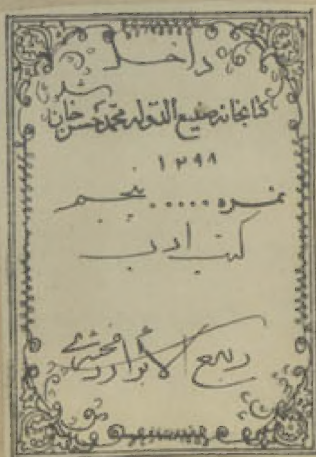 داخل
کتابخانه صنیع الدوله محمد حسن خان شد
۱۲۹۸
نمره ..... پنجم
کتب ادب
ربیع الأبرار زمخشری